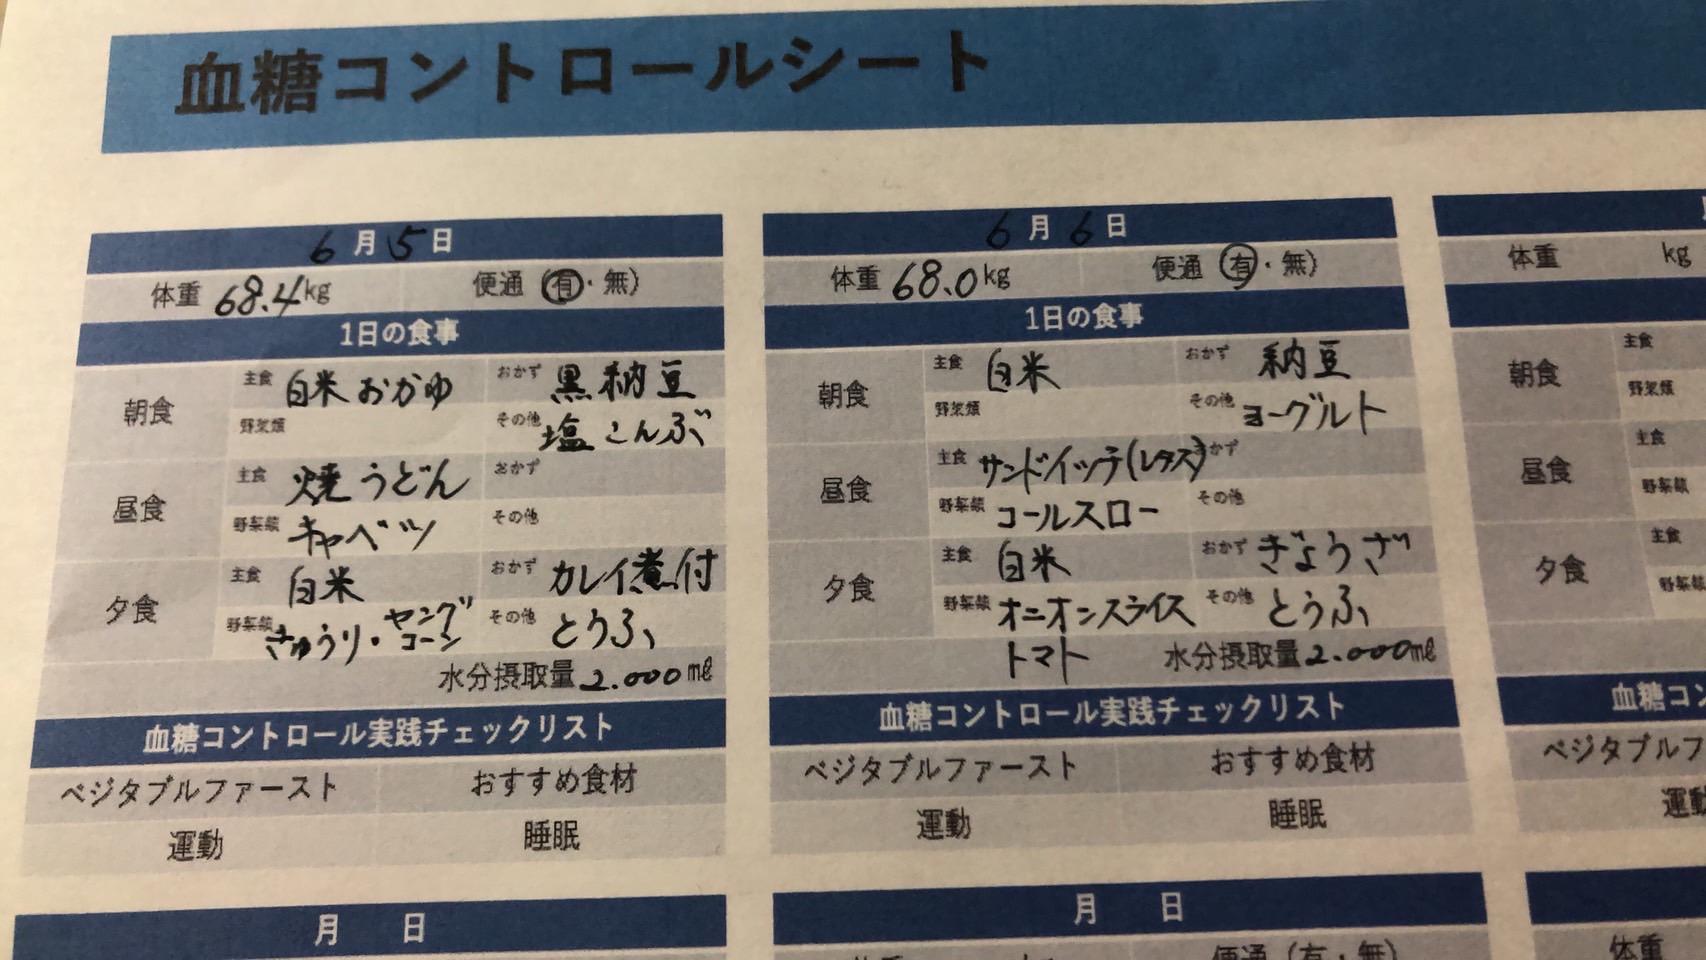 血糖コントロールシート
6月5日
体重 68.4kg 便通(有・無)
1日の食事
朝食
主食 白米おかゆ おかず 黒納豆
野菜類 その他 塩こんぶ
昼食
主食 焼うどん おかず
野菜類 キャベツ その他
夕食
主食 白米 おかず カレイ煮付
野菜類 きゅうり・ヤングコーン その他 とうふ
水分摂取量 2.000ml
血糖コントロール実践チェックリスト
ベジタブルファースト おすすめ食材
運動 睡眠
6月6日
体重 68.0kg 便通(有・無)
1日の食事
朝食
主食 白米 おかず 納豆
野菜類 その他 ヨーグルト
昼食
主食 サンドイッチ(レタス) おかず
野菜類 コールスロー その他
夕食
主食 白米 おかず ぎょうざ
野菜類 オニオンスライス その他 とうふ
トマト 水分摂取量 2.000ml
血糖コントロール実践チェックリスト
ベジタブルファースト おすすめ食材
運動 睡眠
体重 kg
朝食
主食
野菜類
昼食
主食
野菜類
夕食
主食
野菜類
血糖コン
ベジタブルフ
運動
月 日
月 日
便通(有・無)
体重